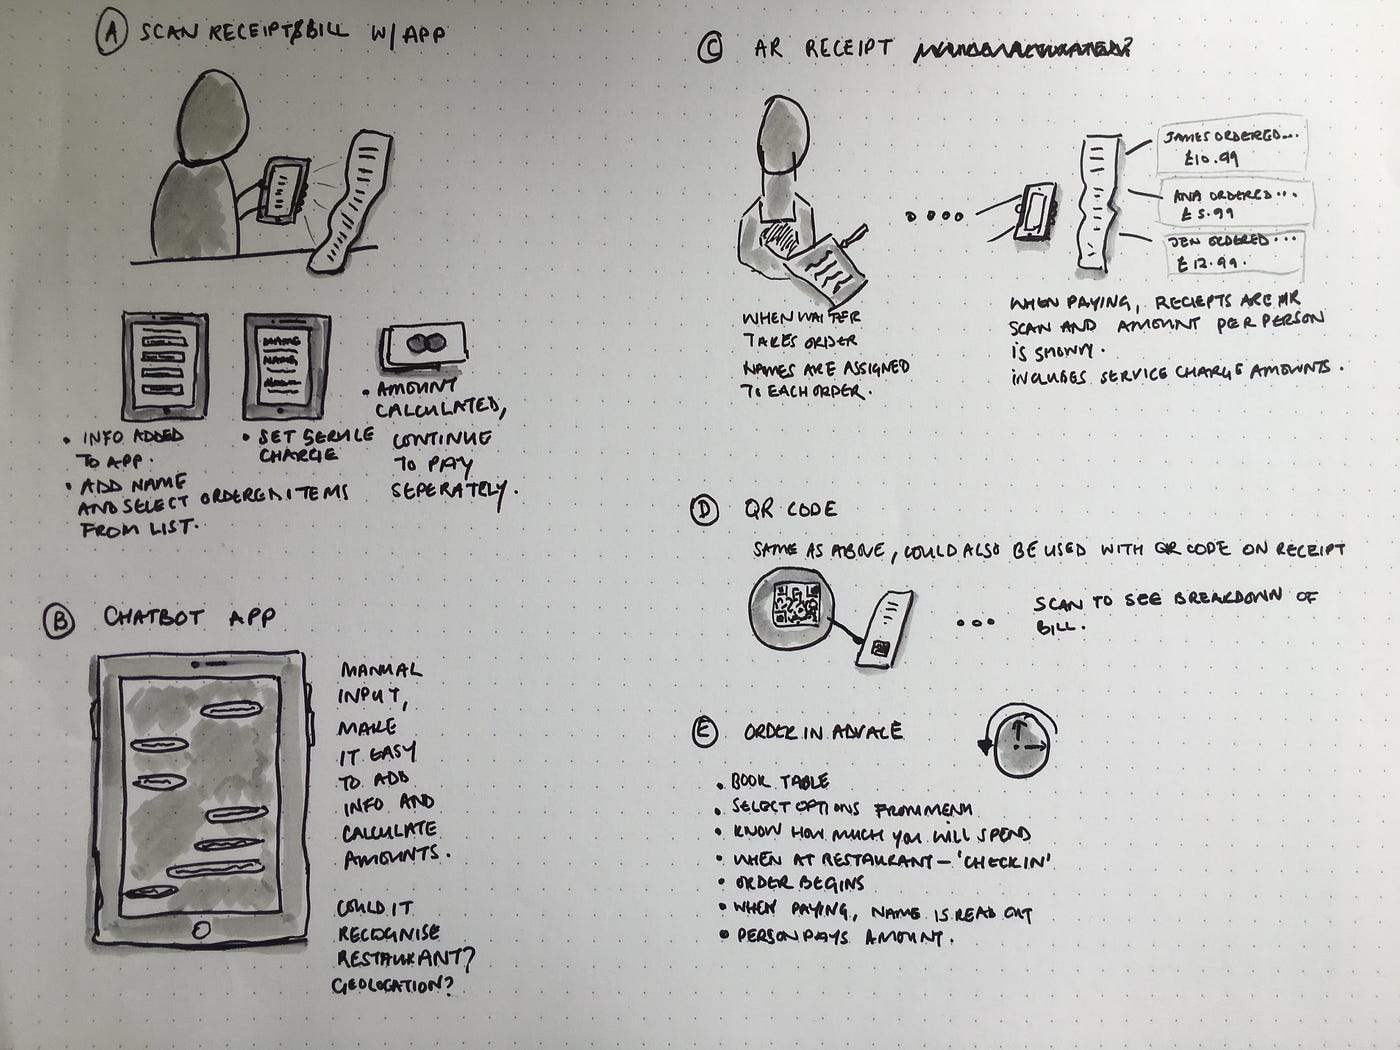 A SCAN RECEIPT/BILL W/ APP
NAME
NAME
• INFO ADDED
TO APP.
• ADD NAME
AND SELECT ORDERED ITEMS
FROM LIST.
• SET SERVICE
CHARGE
• AMOUNT
CALCULATED,
CONTINUE
TO PAY
SEPERATELY.
B CHATBOT APP
MANUAL
INPUT,
MAKE
IT EASY
TO ADD
INFO AND
CALCULATE
AMOUNTS.
COULD IT
RECOGNISE
RESTAURANT?
GEOLOCATION?
C AR RECEIPT
JAMES ORDERED...
£10.99
ANA ORDERED...
£5.99
JEN ORDERED...
£12.99.
WHEN WAITER
TAKES ORDER
NAMES ARE ASSIGNED
TO EACH ORDER.
WHEN PAYING, RECIEPTS ARE
SCAN AND AMOUNT PER PERSON
IS SHOWN.
INCLUDES SERVICE CHARGE AMOUNTS.
D QR CODE
SAME AS ABOVE, COULD ALSO BE USED WITH QR CODE ON RECEIPT
... SCAN TO SEE BREAKDOWN OF
BILL.
E ORDER IN ADVACE
• BOOK TABLE
• SELECT OPTIONS FROM MENU
• KNOW HOW MUCH YOU WILL SPEND
• WHEN AT RESTAURANT – 'CHECK IN'
• ORDER BEGINS
• WHEN PAYING, NAME IS READ OUT
• PERSON PAYS AMOUNT.